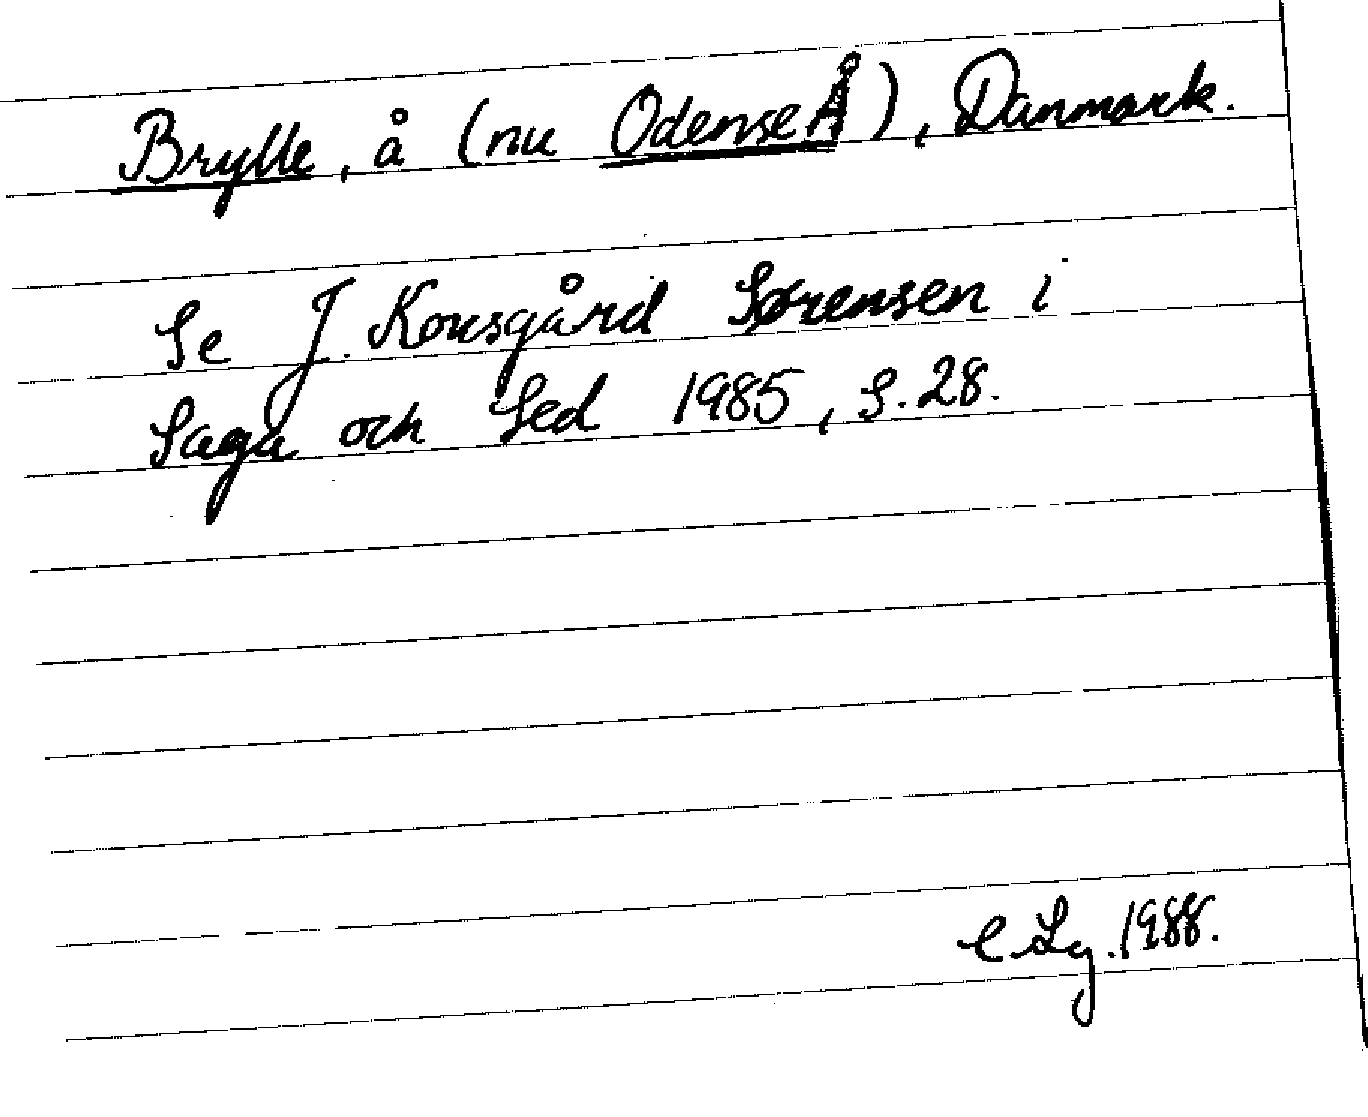 Brylle, å (nu Odense Å), Danmark.
Se J. Kousgård Sørensen i
Saga och Sed 1985, s. 28.
C. Lg. 1988.